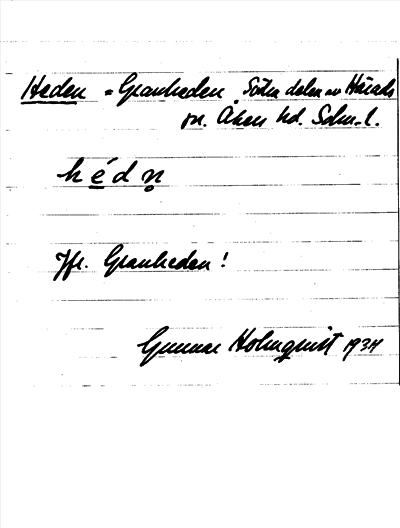 Heden = Granheden, Södra delen av Härads
sn. Åkers hd. Sdm. l.
hédn̥
Jfr. Granheden!
Gunnar Holmquist 1934